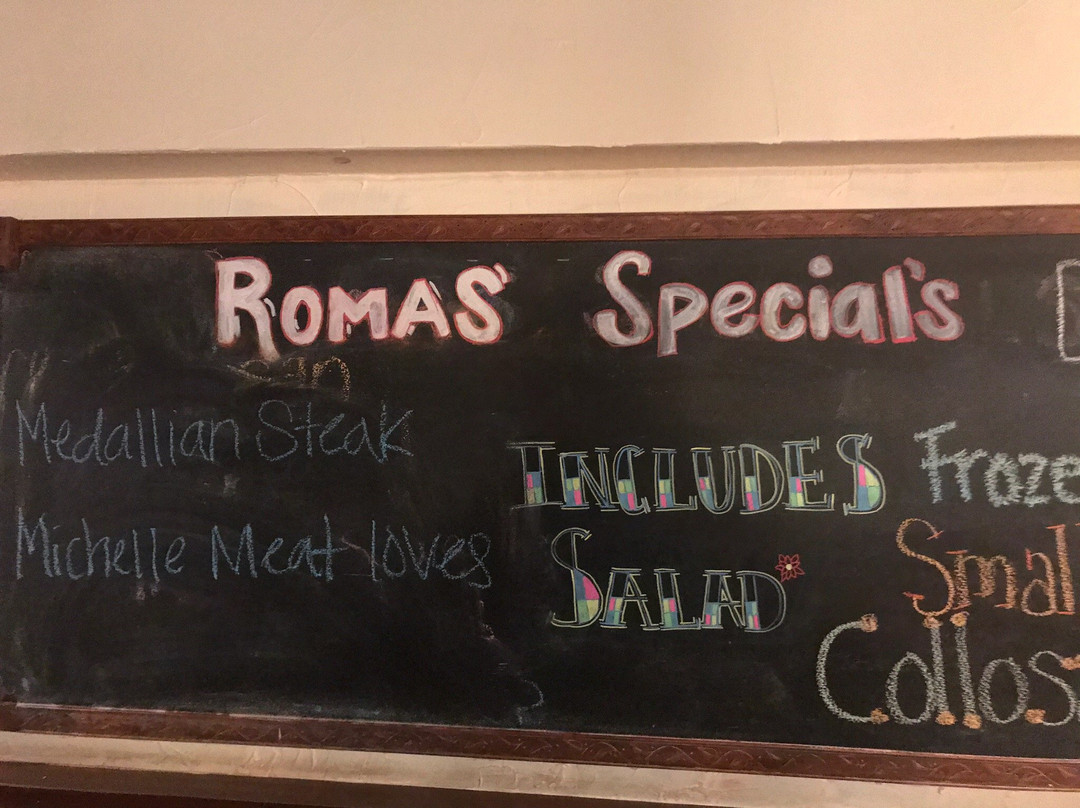 ROMAS' Special's
Medallian Steak
Michelle Meat loves
INCLUDES
SALAD
Froze
Small
Collos